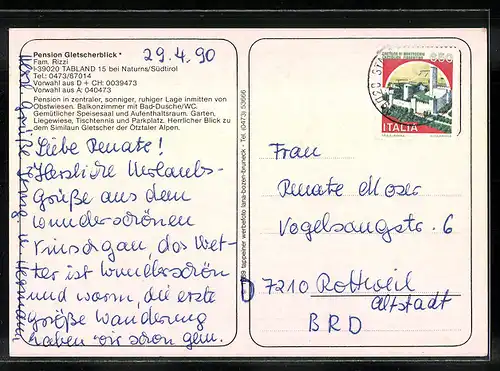 Pension Gletscherblick*
Fam. Rizzi
I-39020 TABLAND 15 bei Naturns/Südtirol
Tel.: 0473/87014
Vorwahl aus D + CH: 0039473
Vorwahl aus A: 040473
Pension in zentraler, sonniger, ruhiger Lage inmitten von
Obstwiesen. Balkonzimmer mit Bad-Dusche/WC.
Gemütlicher Speisesaal und Aufenthaltsraum. Garten,
Liegewiese, Tischtennis und Parkplatz. Herrlicher Blick zu
dem Similaun Gletscher der Ötztaler Alpen.
29.4.90
Liebe Renate!
Herzliche Urlaubs-
grüße aus dem
wunderschönen
Vinschgau, das Wet-
ter ist wunderschön
und warm, die erste
größe Wanderung
haben wir schon gem.
Grüße
u. Hermann
tappeiner werbefoto lana-bozen-bruneck · Tel. (0473) 53666
650
ITALIA
Frau
Renate Moser
Vogelsangstr. 6
D 7210 Rottweil
Altstadt
BRD